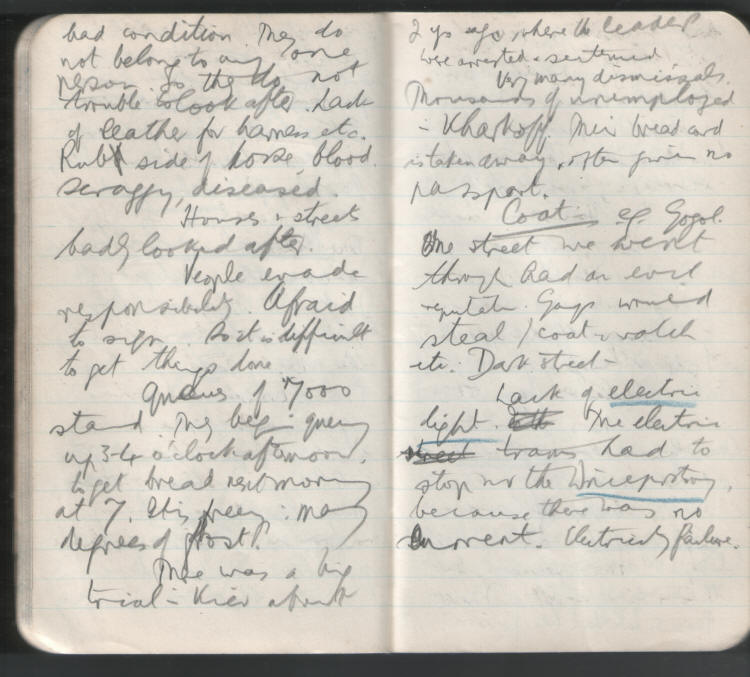 bad condition. They do
not belong to any one
person. So they do not
trouble to look after. Lack
of leather for harness etc.
Rub side of horse, blood.
scraggy, diseased.
Houses & streets
badly looked after.
People evade
responsibility. Afraid
to sign. So it is difficult
to get things done.
Queues of 7000
stand. They begin queuing
up 3-4 o'clock afternoon,
to get bread next morning
at 7. It is freezing: many
degrees of frost.
There was a big
trial in Kiev about
2 yrs ago, where the leaders
were arrested & sentenced
Very many dismissals.
Thousands of unemployed
in Kharkoff. Their bread card
is taken away, often given no
passport.
Coat - eg. Gogol.
One street we went
through had an evil
reputation. Gangs would
steal / coat & watch
etc. Dark street -
Lack of electric
light. The electric
street trams had to
stop on the Dnieprostroy,
because there was no
current. Electricity failure.